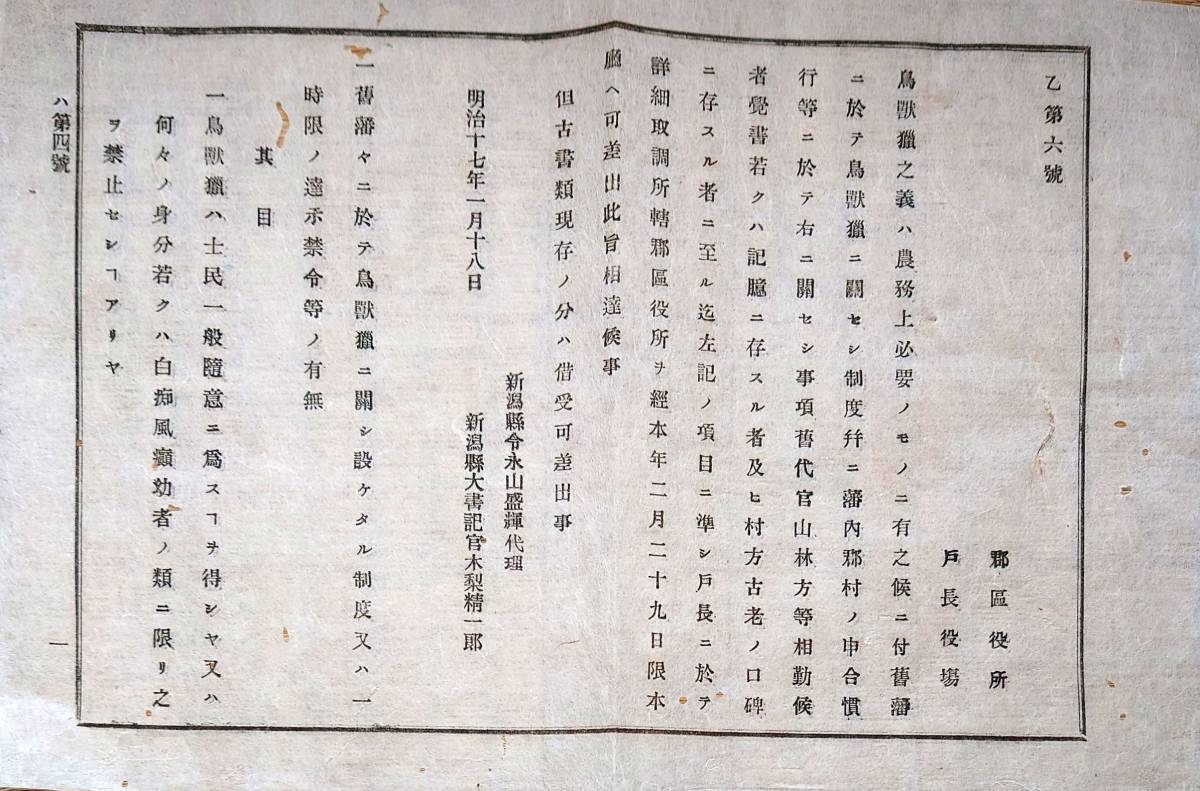 乙第六號
郡區役所
戶長役場
鳥獸獵之義ハ農務上必要ノモノニ有之候ニ付舊藩
ニ於テ鳥獸獵ニ關セシ制度幷ニ藩內郡村ノ申合慣
行等ニ於テ右ニ關セシ事項舊代官山林方等相勤候
者覺書若クハ記臆ニ存スル者及ヒ村方古老ノ口碑
ニ存スル者ニ至ル迄左記ノ項目ニ準シ戶長ニ於テ
詳細取調所轄郡區役所ヲ經本年二月二十九日限本
廳ヘ可差出此旨相達候事
但古書類現存ノ分ハ借受可差出事
新潟縣令永山盛輝代理
明治十七年一月十八日　新潟縣大書記官木梨精一郎
一舊藩々ニ於テ鳥獸獵ニ關シ設ケタル制度又ハ一
時限ノ達示禁令等ノ有無
其目
一鳥獸獵ハ士民一般隨意ニ爲スヿヲ得シヤ又ハ
何々ノ身分若クハ白痴風癲幼者ノ類ニ限リ之
ヲ禁止セシヿアリヤ
ハ第四號
一